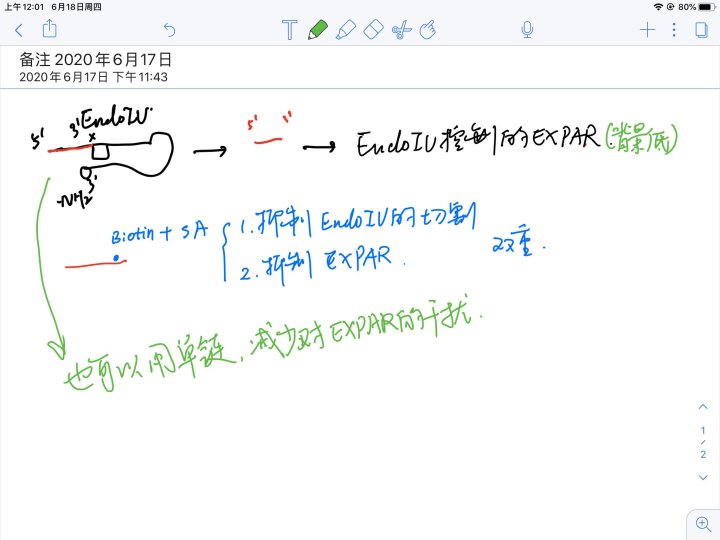 上午12:01 6月18日周四
80%
T
备注 2020年6月17日
2020年6月17日 下午11:43
5' 3' EndoIV
5' 3'
EndoIV控制的EXPAR (背景低)
3'
-NH2
Biotin + SA
1. 抑制 EndoIV的切割
2. 抑制 EXPAR.
双重.
也可以用单链, 减少对EXPAR的干扰.
1
/
2